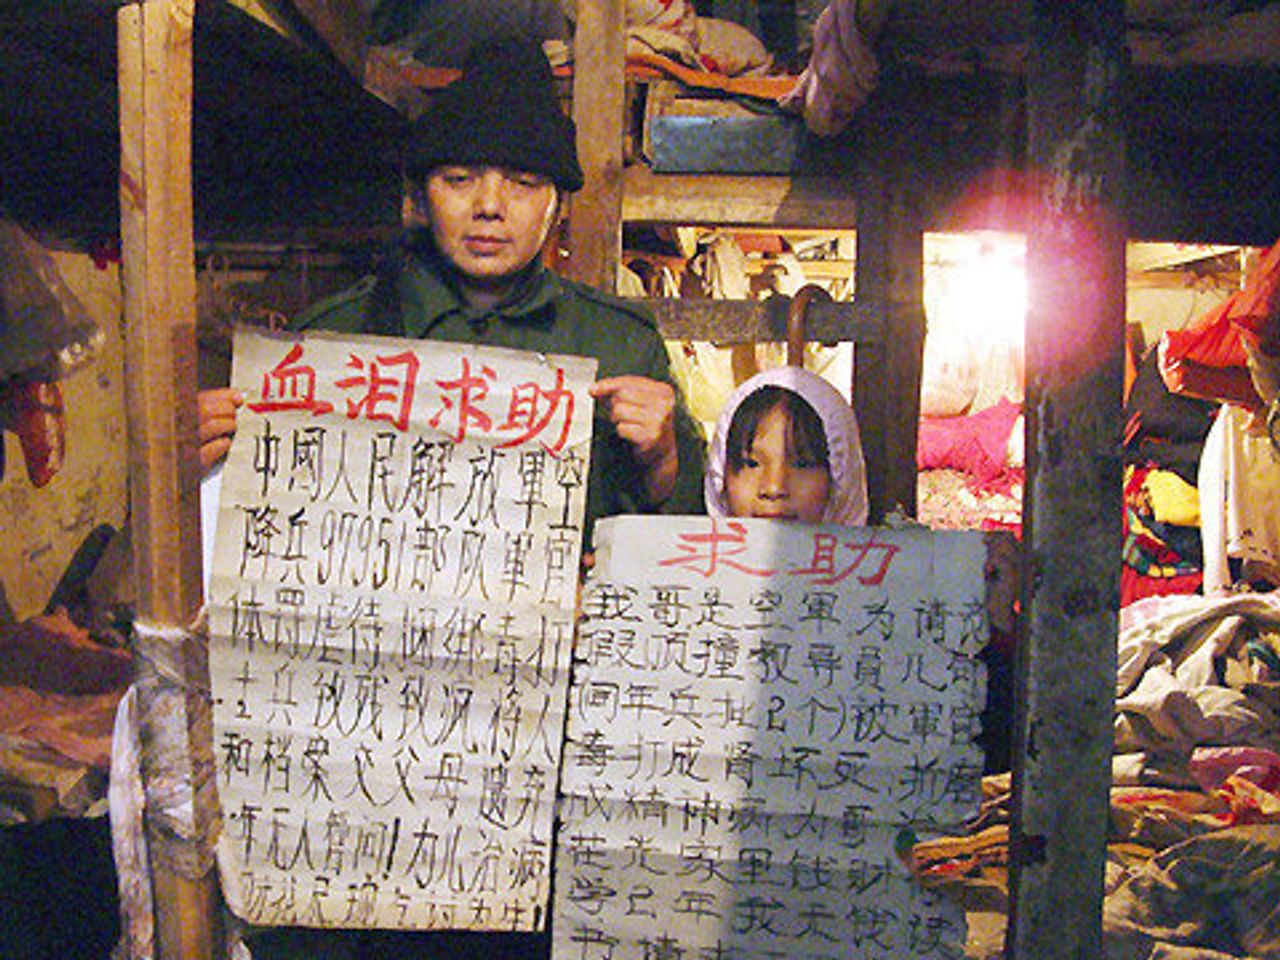 血泪求助
中國人民解放軍空
降兵97951部队軍官
体罚虐待捆绑毒打
士兵致残致疯将人
和档案交父母遗弃
年无人管问!为儿治病
求助
我哥是空軍为请
假顶撞教导員儿
同年兵 2个)被軍官
毒打成肾坏死,折磨
成精神病为哥治
花光家里钱财
学2年我无钱读
书